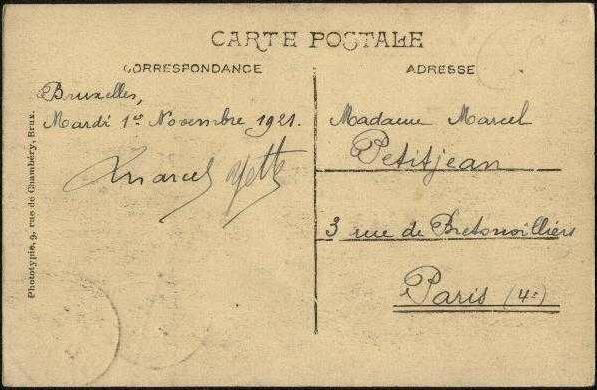 CARTE POSTALE
CORRESPONDANCE
ADRESSE
Bruxelles,
Mardi 1er Novembre 1921.
Marcel Yette
Madame Marcel
Petitjean
3 rue de Bretonvilliers
Paris (4e)
Phototypie, 9, rue de Chambéry, Brux.